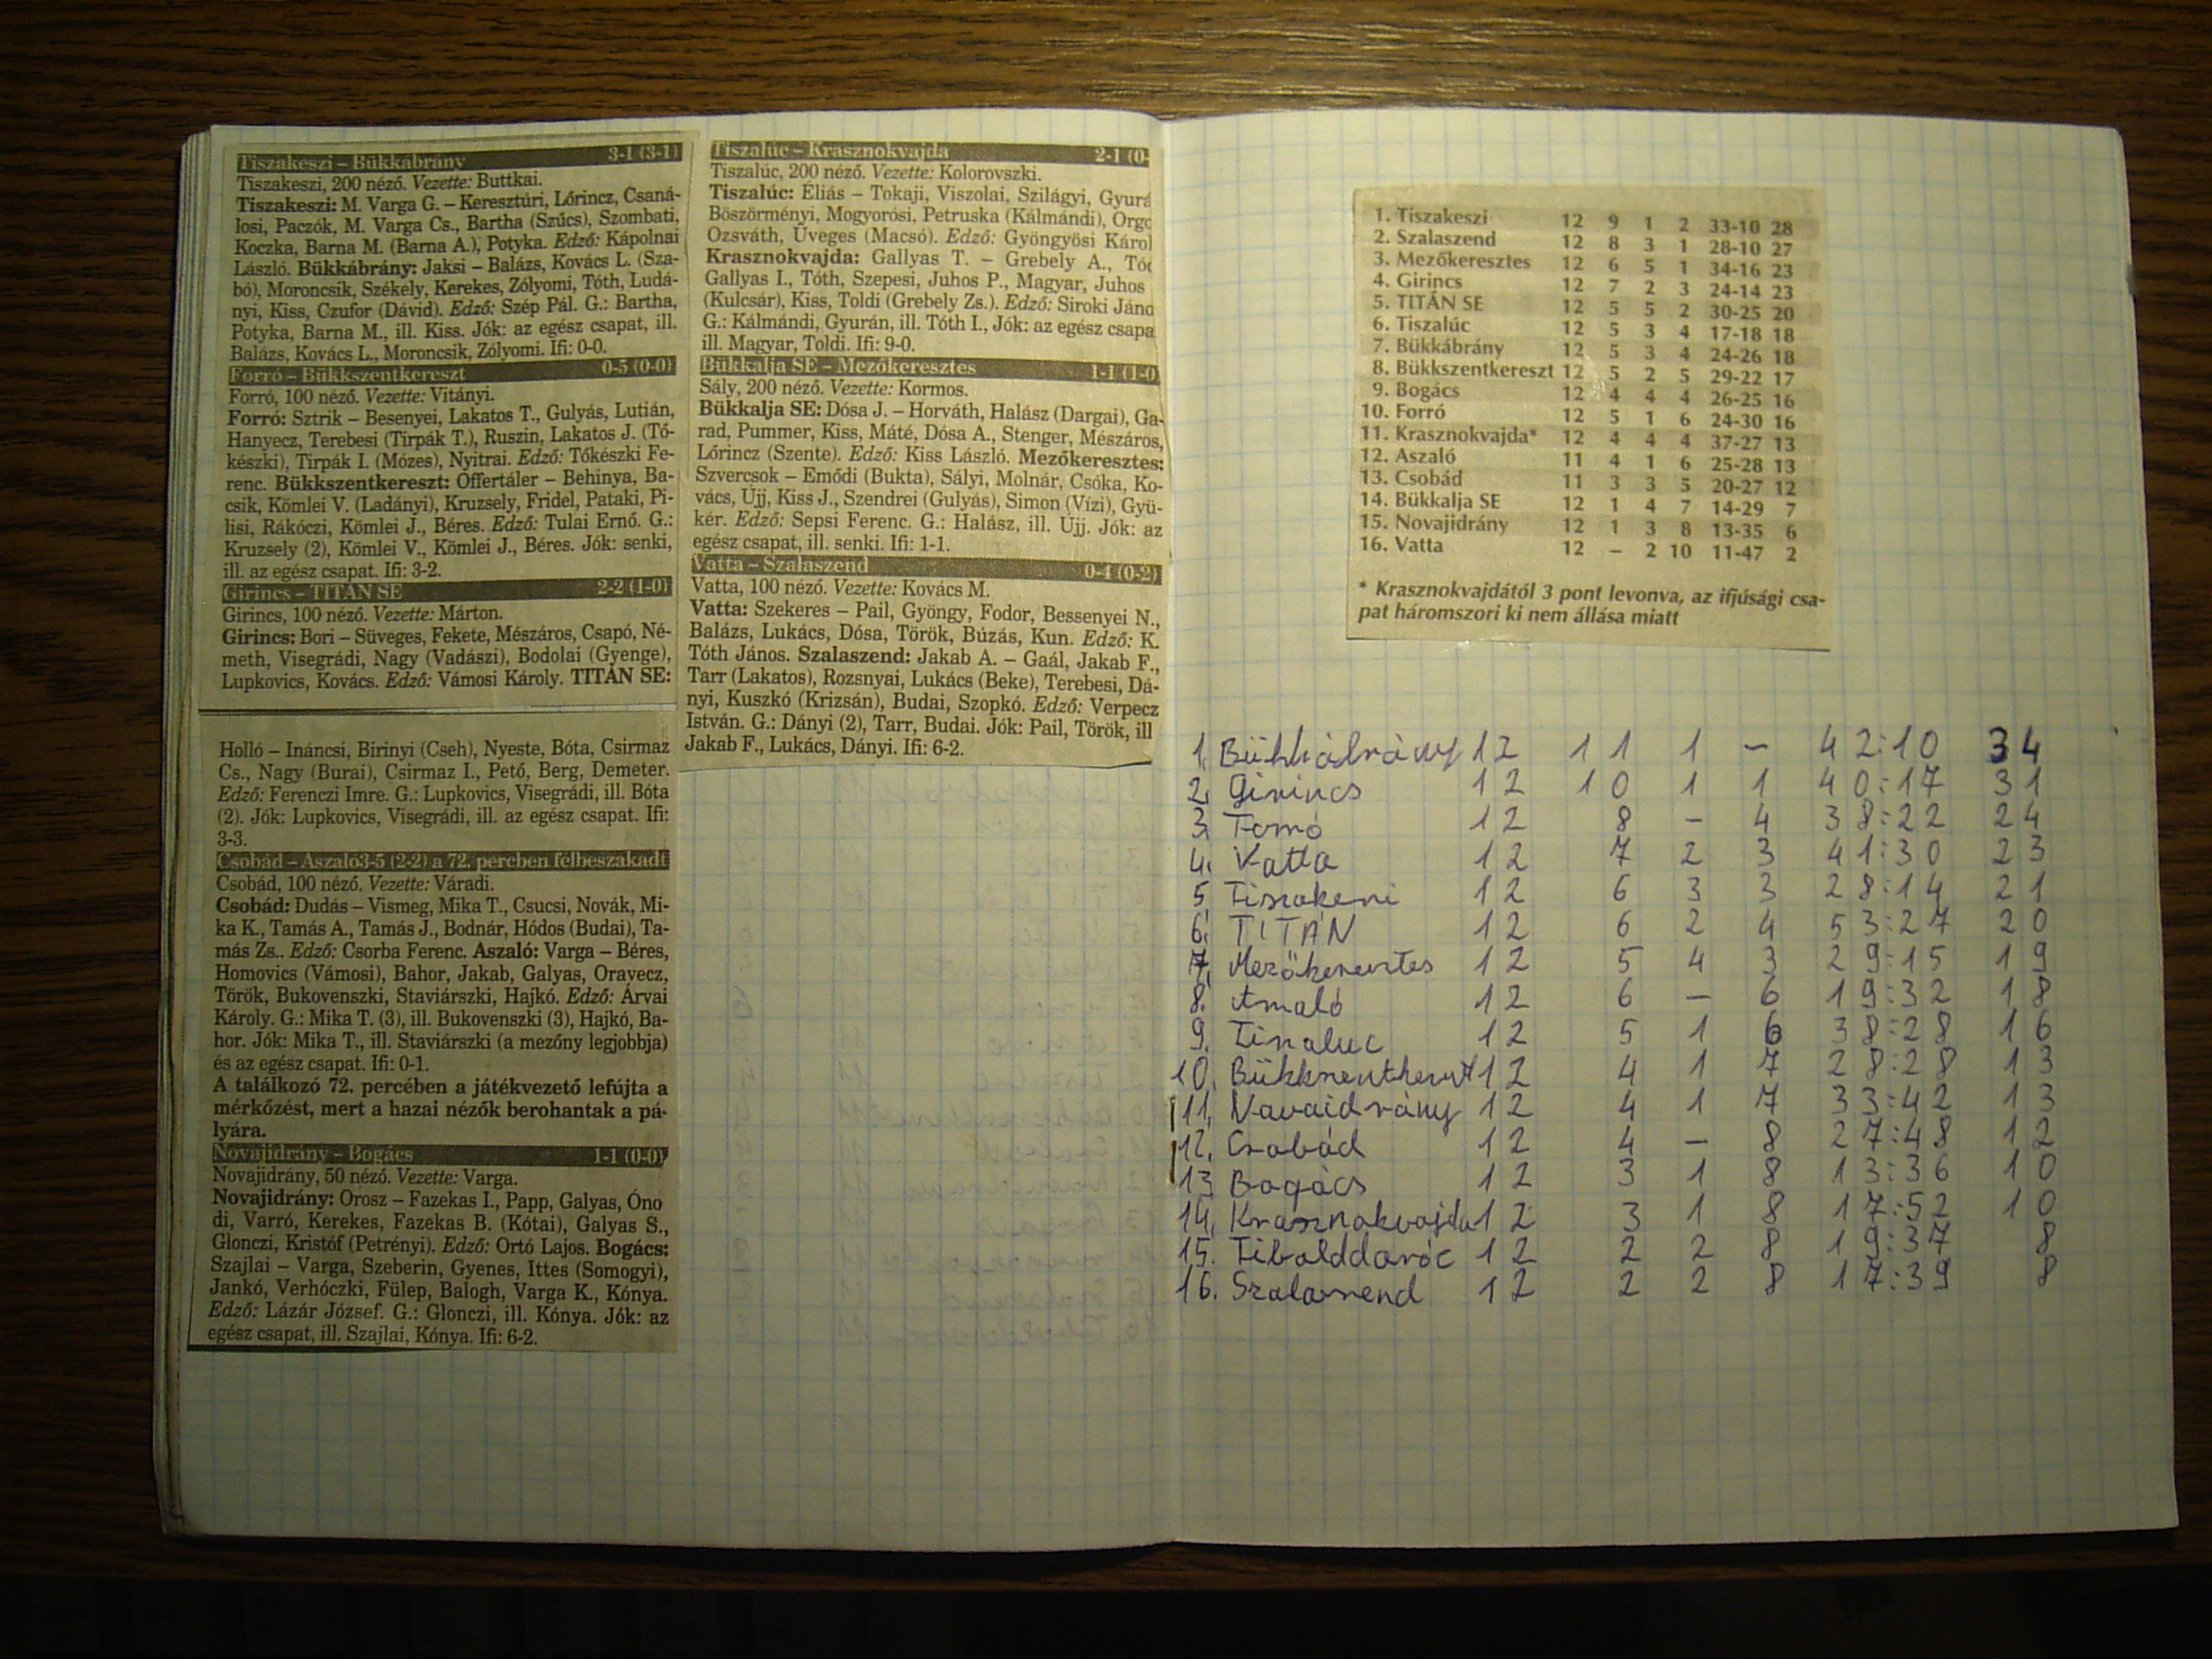 Tiszakeszi – Bükkábrány 3-1 (3-1)
Tiszakeszi, 200 néző. Vezette: Buttkai.
Tiszakeszi: M. Varga G. – Keresztúri, Lőrincz, Csaná-
losi, Paczók, M. Varga Cs., Bartha (Szűcs), Szombati,
Koczka, Barna M. (Barna A.), Potyka. Edző: Kápolnai
László. Bükkábrány: Jaksi – Balázs, Kovács L. (Sza-
bó), Moroncsik, Székely, Kerekes, Zólyomi, Tóth, Ludá-
nyi, Kiss, Czufor (Dávid). Edző: Szép Pál. G.: Bartha,
Potyka, Barna M., ill. Kiss. Jók: az egész csapat, ill.
Balázs, Kovács L., Moroncsik, Zólyomi. Ifi: 0-0.
Forró – Bükkszentkereszt 0-5 (0-0)
Forró, 100 néző. Vezette: Vitányi.
Forró: Sztrik – Besenyei, Lakatos T., Gulyás, Lutián,
Hanyecz, Terebesi (Tirpák T.), Ruszin, Lakatos J. (Tő-
készki), Tirpák I. (Mózes), Nyitrai. Edző: Tőkészki Fe-
renc. Bükkszentkereszt: Offertáler – Behinya, Ba-
csik, Kömlei V. (Ladányi), Kruzsely, Fridel, Pataki, Pi-
lisi, Rákóczi, Kömlei J., Béres. Edző: Tulai Ernő. G.:
Kruzsely (2), Kömlei V., Kömlei J., Béres. Jók: senki,
ill. az egész csapat. Ifi: 3-2.
Girincs – TITÁN SE 2-2 (1-0)
Girincs, 100 néző. Vezette: Márton.
Girincs: Bori – Süveges, Fekete, Mészáros, Csapó, Né-
meth, Visegrádi, Nagy (Vadászi), Bodolai (Gyenge),
Lupkovics, Kovács. Edző: Vámosi Károly. TITÁN SE:
Holló – Ináncsi, Birinyi (Cseh), Nyeste, Bóta, Csirmaz
Cs., Nagy (Burai), Csirmaz I., Pető, Berg, Demeter.
Edző: Ferenczi Imre. G.: Lupkovics, Visegrádi, ill. Bóta
(2). Jók: Lupkovics, Visegrádi, ill. az egész csapat. Ifi:
3-3.
Csobád – Aszaló 3-5 (2-2) a 72. percben félbeszakadt
Csobád, 100 néző. Vezette: Váradi.
Csobád: Dudás – Vismeg, Mika T., Csucsi, Novák, Mi-
ka K., Tamás A., Tamás J., Bodnár, Hódos (Budai), Ta-
más Zs.. Edző: Csorba Ferenc. Aszaló: Varga – Béres,
Homovics (Vámosi), Bahor, Jakab, Galyas, Oravecz,
Török, Bukovenszki, Staviárszki, Hajkó. Edző: Árvai
Károly. G.: Mika T. (3), ill. Bukovenszki (3), Hajkó, Ba-
hor. Jók: Mika T., ill. Staviárszki (a mezőny legjobbja)
és az egész csapat. Ifi: 0-1.
A találkozó 72. percében a játékvezető lefújta a
mérkőzést, mert a hazai nézők berohantak a pá-
lyára.
Novajidrány – Bogács 1-1 (0-0)
Novajidrány, 50 néző. Vezette: Varga.
Novajidrány: Orosz – Fazekas I., Papp, Galyas, Óno
di, Varró, Kerekes, Fazekas B. (Kótai), Galyas S.,
Glonczi, Kristóf (Petrényi). Edző: Ortó Lajos. Bogács:
Szajlai – Varga, Szeberin, Gyenes, Ittes (Somogyi),
Jankó, Verhóczki, Fülep, Balogh, Varga K., Kónya.
Edző: Lázár József. G.: Glonczi, ill. Kónya. Jók: az
egész csapat, ill. Szajlai, Kónya. Ifi: 6-2.
Tiszalúc – Krasznokvajda 2-1 (0-
Tiszalúc, 200 néző. Vezette: Kolorovszki.
Tiszalúc: Éliás – Tokaji, Viszolai, Szilágyi, Gyurá
Böszörményi, Mogyorósi, Petruska (Kálmándi), Orgo
Ozsváth, Üveges (Macsó). Edző: Gyöngyösi Károl
Krasznokvajda: Gallyas T. – Grebely A., Tót
Gallyas I., Tóth, Szepesi, Juhos P., Magyar, Juhos
(Kulcsár), Kiss, Toldi (Grebely Zs.). Edző: Siroki Jáno
G.: Kálmándi, Gyurán, ill. Tóth I., Jók: az egész csapa
ill. Magyar, Toldi. Ifi: 9-0.
Bükkalja SE – Mezőkeresztes 1-1 (1-0)
Sály, 200 néző. Vezette: Kormos.
Bükkalja SE: Dósa J. – Horváth, Halász (Dargai), Ga-
rad, Pummer, Kiss, Máté, Dósa A., Stenger, Mészáros,
Lőrincz (Szente). Edző: Kiss László. Mezőkeresztes:
Szvercsok – Emődi (Bukta), Sályi, Molnár, Csóka, Ko-
vács, Ujj, Kiss J., Szendrei (Gulyás), Simon (Vízi), Gyü-
kér. Edző: Sepsi Ferenc. G.: Halász, ill. Ujj. Jók: az
egész csapat, ill. senki. Ifi: 1-1.
Vatta – Szalaszend 0-4 (0-2)
Vatta, 100 néző. Vezette: Kovács M.
Vatta: Szekeres – Pail, Gyöngy, Fodor, Bessenyei N.,
Balázs, Lukács, Dósa, Török, Búzás, Kun. Edző: K.
Tóth János. Szalaszend: Jakab A. – Gaál, Jakab F.,
Tarr (Lakatos), Rozsnyai, Lukács (Beke), Terebesi, Dá-
nyi, Kuszkó (Krizsán), Budai, Szopkó. Edző: Verpecz
István. G.: Dányi (2), Tarr, Budai. Jók: Pail, Török, ill
Jakab F., Lukács, Dányi. Ifi: 6-2.
1. Tiszakeszi 12 9 1 2 33-10 28
2. Szalaszend 12 8 3 1 28-10 27
3. Mezőkeresztes 12 6 5 1 34-16 23
4. Girincs 12 7 2 3 24-14 23
5. TITÁN SE 12 5 5 2 30-25 20
6. Tiszalúc 12 5 3 4 17-18 18
7. Bükkábrány 12 5 3 4 24-26 18
8. Bükkszentkereszt 12 5 2 5 29-22 17
9. Bogács 12 4 4 4 26-25 16
10. Forró 12 5 1 6 24-30 16
11. Krasznokvajda* 12 4 4 4 37-27 13
12. Aszaló 11 4 1 6 25-28 13
13. Csobád 11 3 3 5 20-27 12
14. Bükkalja SE 12 1 4 7 14-29 7
15. Novajidrány 12 1 3 8 13-35 6
16. Vatta 12 – 2 10 11-47 2
* Krasznokvajdától 3 pont levonva, az ifjúsági csa-
pat háromszori ki nem állása miatt
1. Bükkábrány 12 11 1 – 42:10 34
2. Girincs 12 10 1 1 40:17 31
3. Forró 12 8 – 4 38:22 24
4. Vatta 12 7 2 3 41:30 23
5. Tiszakeszi 12 6 3 3 28:14 21
6. TITÁN 12 6 2 4 53:27 20
7. Mezőkeresztes 12 5 4 3 29:15 19
8. Aszaló 12 6 – 6 19:32 18
9. Tiszaluc 12 5 1 6 38:28 16
10. Bükkszentkereszt 12 4 1 7 28:28 13
11. Novaidrány 12 4 1 7 33:42 13
12. Csobád 12 4 – 8 27:48 12
13. Bogács 12 3 1 8 13:36 10
14. Krasznokvajda 12 3 1 8 17:52 10
15. Tibolddaróc 12 2 2 8 19:37 8
16. Szalaszend 12 2 2 8 17:39 8